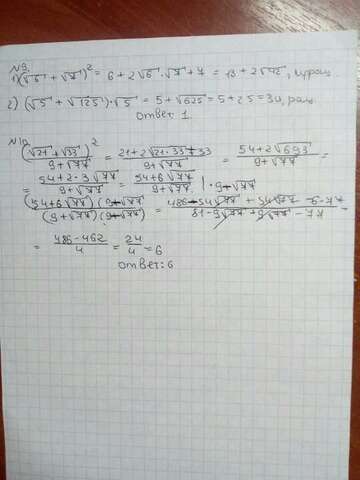 №9.
1) (√6 + √7)² = 6 + 2√6 · √7 + 7 = 13 + 2√42, иррац.
2) (√5 + √125) · √5 = 5 + √625 = 5 + 25 = 30, рац.
ответ 1
№10
(√21 + √33)² / 9+√77 = 21 + 2√21·33 + 33 / 9+√77 = 54 + 2√693 / 9+√77 =
= 54 + 2·3√77 / 9+√77 = 54 + 6√77 / 9+√77 | · 9-√77
(54+6√77)(9-√77) / (9+√77)(9-√77) = 486 - 54√77 + 54√77 - 6·77 / 81 - 9√77 + 9√77 - 77 =
= 486 - 462 / 4 = 24 / 4 = 6
ответ: 6